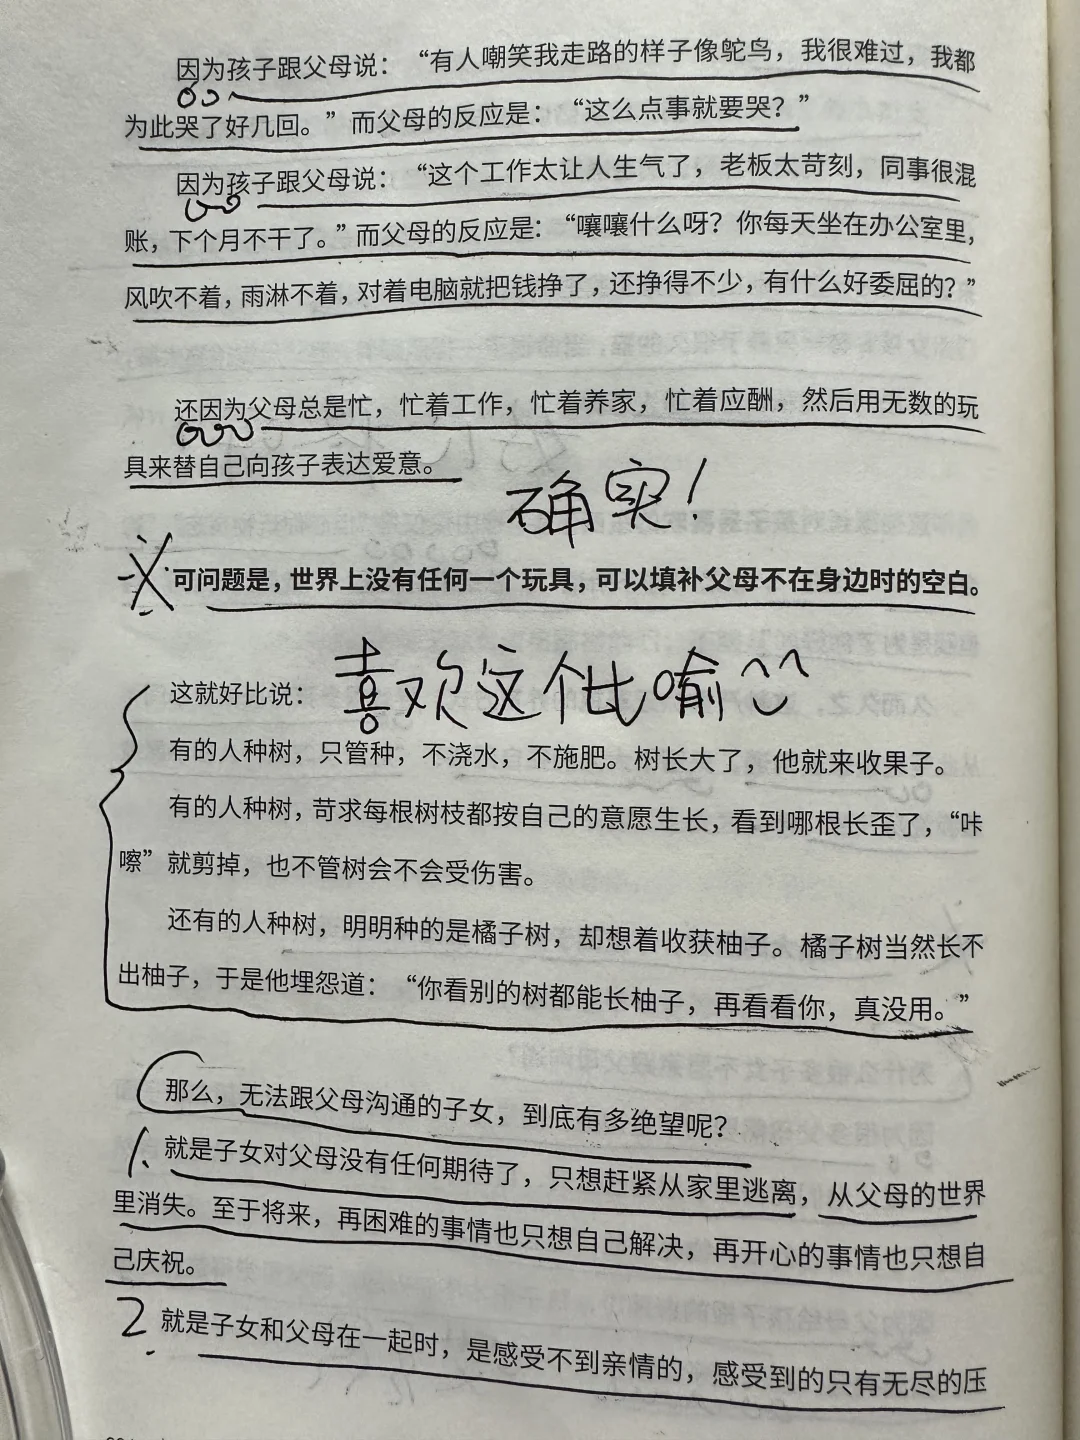 因为孩子跟父母说：“有人嘲笑我走路的样子像鸵鸟，我很难过，我都
为此哭了好几回。”而父母的反应是：“这么点事就要哭？”
因为孩子跟父母说：“这个工作太让人生气了，老板太苛刻，同事很混
账，下个月不干了。”而父母的反应是：“嚷嚷什么呀？你每天坐在办公室里，
风吹不着，雨淋不着，对着电脑就把钱挣了，还挣得不少，有什么好委屈的？”
还因为父母总是忙，忙着工作，忙着养家，忙着应酬，然后用无数的玩
具来替自己向孩子表达爱意。
确实！
可问题是，世界上没有任何一个玩具，可以填补父母不在身边时的空白。
喜欢这个比喻^^
这就好比说：
有的人种树，只管种，不浇水，不施肥。树长大了，他就来收果子。
有的人种树，苛求每根树枝都按自己的意愿生长，看到哪根长歪了，“咔
嚓”就剪掉，也不管树会不会受伤害。
还有的人种树，明明种的是橘子树，却想着收获柚子。橘子树当然长不
出柚子，于是他埋怨道：“你看别的树都能长柚子，再看看你，真没用。”
那么，无法跟父母沟通的子女，到底有多绝望呢？
1. 就是子女对父母没有任何期待了，只想赶紧从家里逃离，从父母的世界
里消失。至于将来，再困难的事情也只想自己解决，再开心的事情也只想自
己庆祝。
2. 就是子女和父母在一起时，是感受不到亲情的，感受到的只有无尽的压